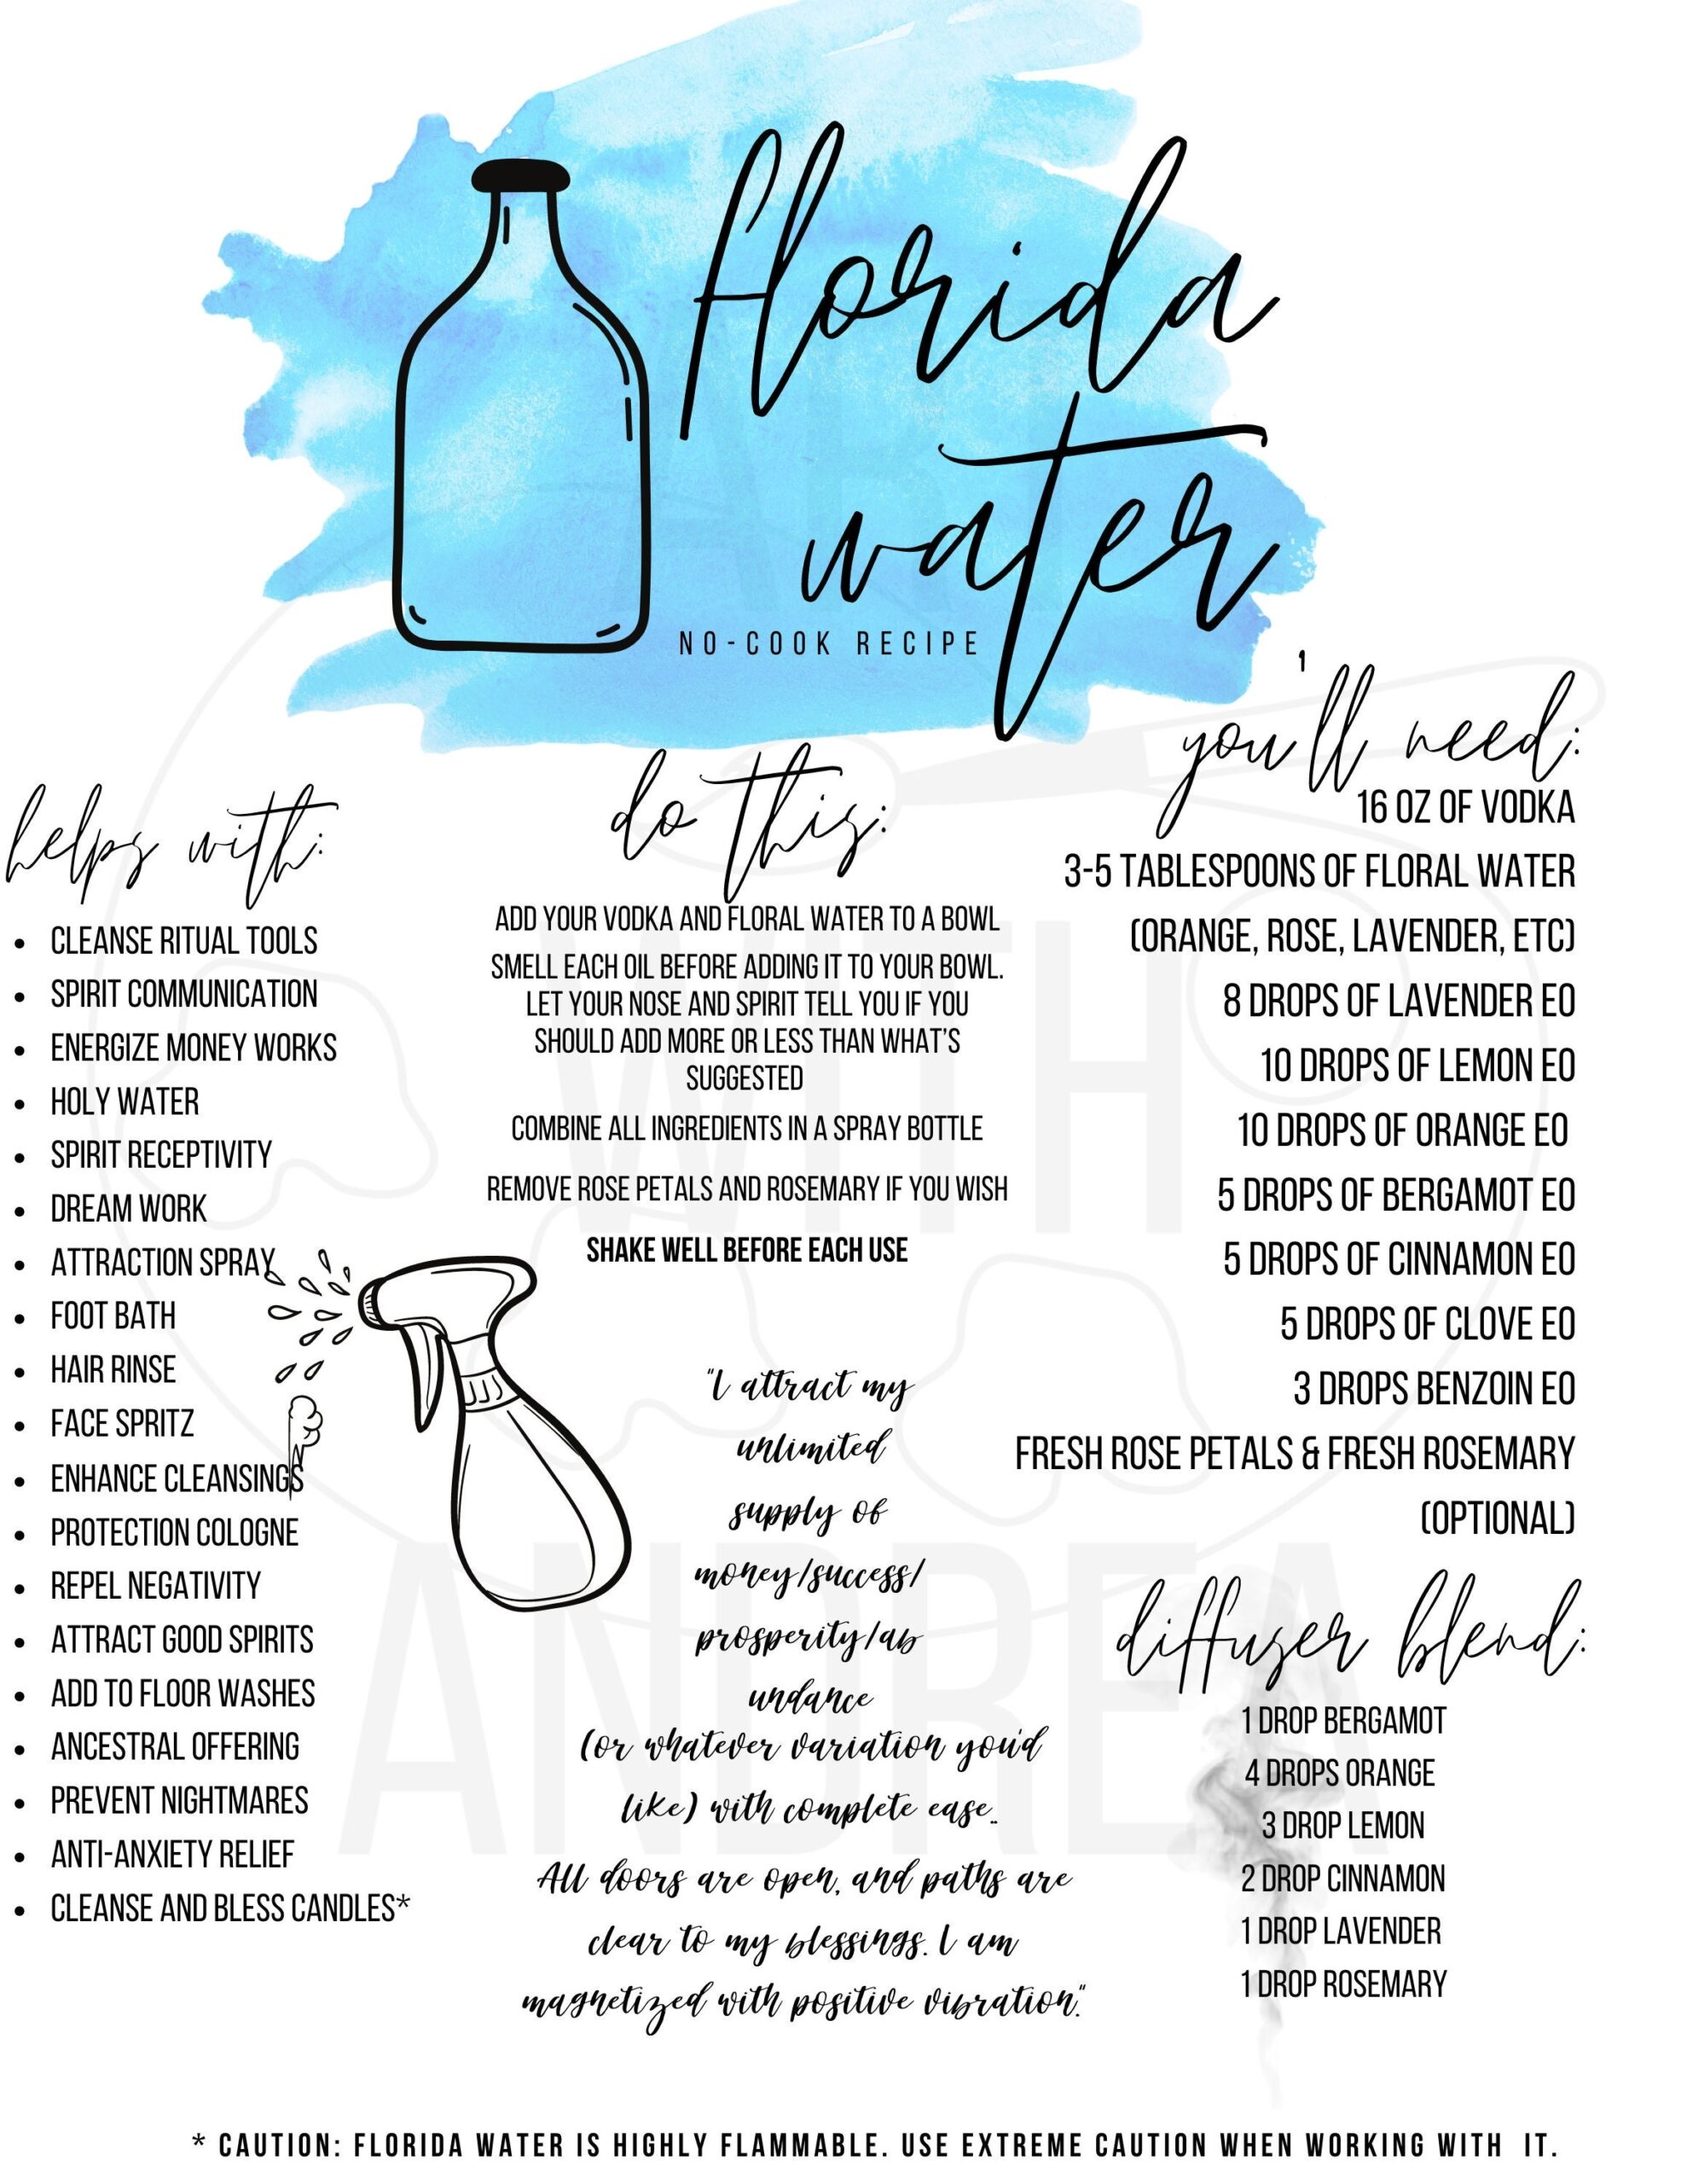 florida
water
NO-COOK RECIPE
helps with:
• CLEANSE RITUAL TOOLS
• SPIRIT COMMUNICATION
• ENERGIZE MONEY WORKS
• HOLY WATER
• SPIRIT RECEPTIVITY
• DREAM WORK
• ATTRACTION SPRAY
• FOOT BATH
• HAIR RINSE
• FACE SPRITZ
• ENHANCE CLEANSINGS
• PROTECTION COLOGNE
• REPEL NEGATIVITY
• ATTRACT GOOD SPIRITS
• ADD TO FLOOR WASHES
• ANCESTRAL OFFERING
• PREVENT NIGHTMARES
• ANTI-ANXIETY RELIEF
• CLEANSE AND BLESS CANDLES*
do this:
ADD YOUR VODKA AND FLORAL WATER TO A BOWL
SMELL EACH OIL BEFORE ADDING IT TO YOUR BOWL.
LET YOUR NOSE AND SPIRIT TELL YOU IF YOU
SHOULD ADD MORE OR LESS THAN WHAT'S
SUGGESTED
COMBINE ALL INGREDIENTS IN A SPRAY BOTTLE
REMOVE ROSE PETALS AND ROSEMARY IF YOU WISH
SHAKE WELL BEFORE EACH USE
"I attract my
unlimited
supply of
money/success/
prosperity/ab
undance
(or whatever variation you'd
like) with complete ease..
All doors are open, and paths are
clear to my blessings. I am
magnetized with positive vibration."
you'll need:
16 OZ OF VODKA
3-5 TABLESPOONS OF FLORAL WATER
(ORANGE, ROSE, LAVENDER, ETC)
8 DROPS OF LAVENDER EO
10 DROPS OF LEMON EO
10 DROPS OF ORANGE EO
5 DROPS OF BERGAMOT EO
5 DROPS OF CINNAMON EO
5 DROPS OF CLOVE EO
3 DROPS BENZOIN EO
FRESH ROSE PETALS & FRESH ROSEMARY
(OPTIONAL)
diffuser blend:
1 DROP BERGAMOT
4 DROPS ORANGE
3 DROP LEMON
2 DROP CINNAMON
1 DROP LAVENDER
1 DROP ROSEMARY
* CAUTION: FLORIDA WATER IS HIGHLY FLAMMABLE. USE EXTREME CAUTION WHEN WORKING WITH IT.
ART
WITH
ANDREA